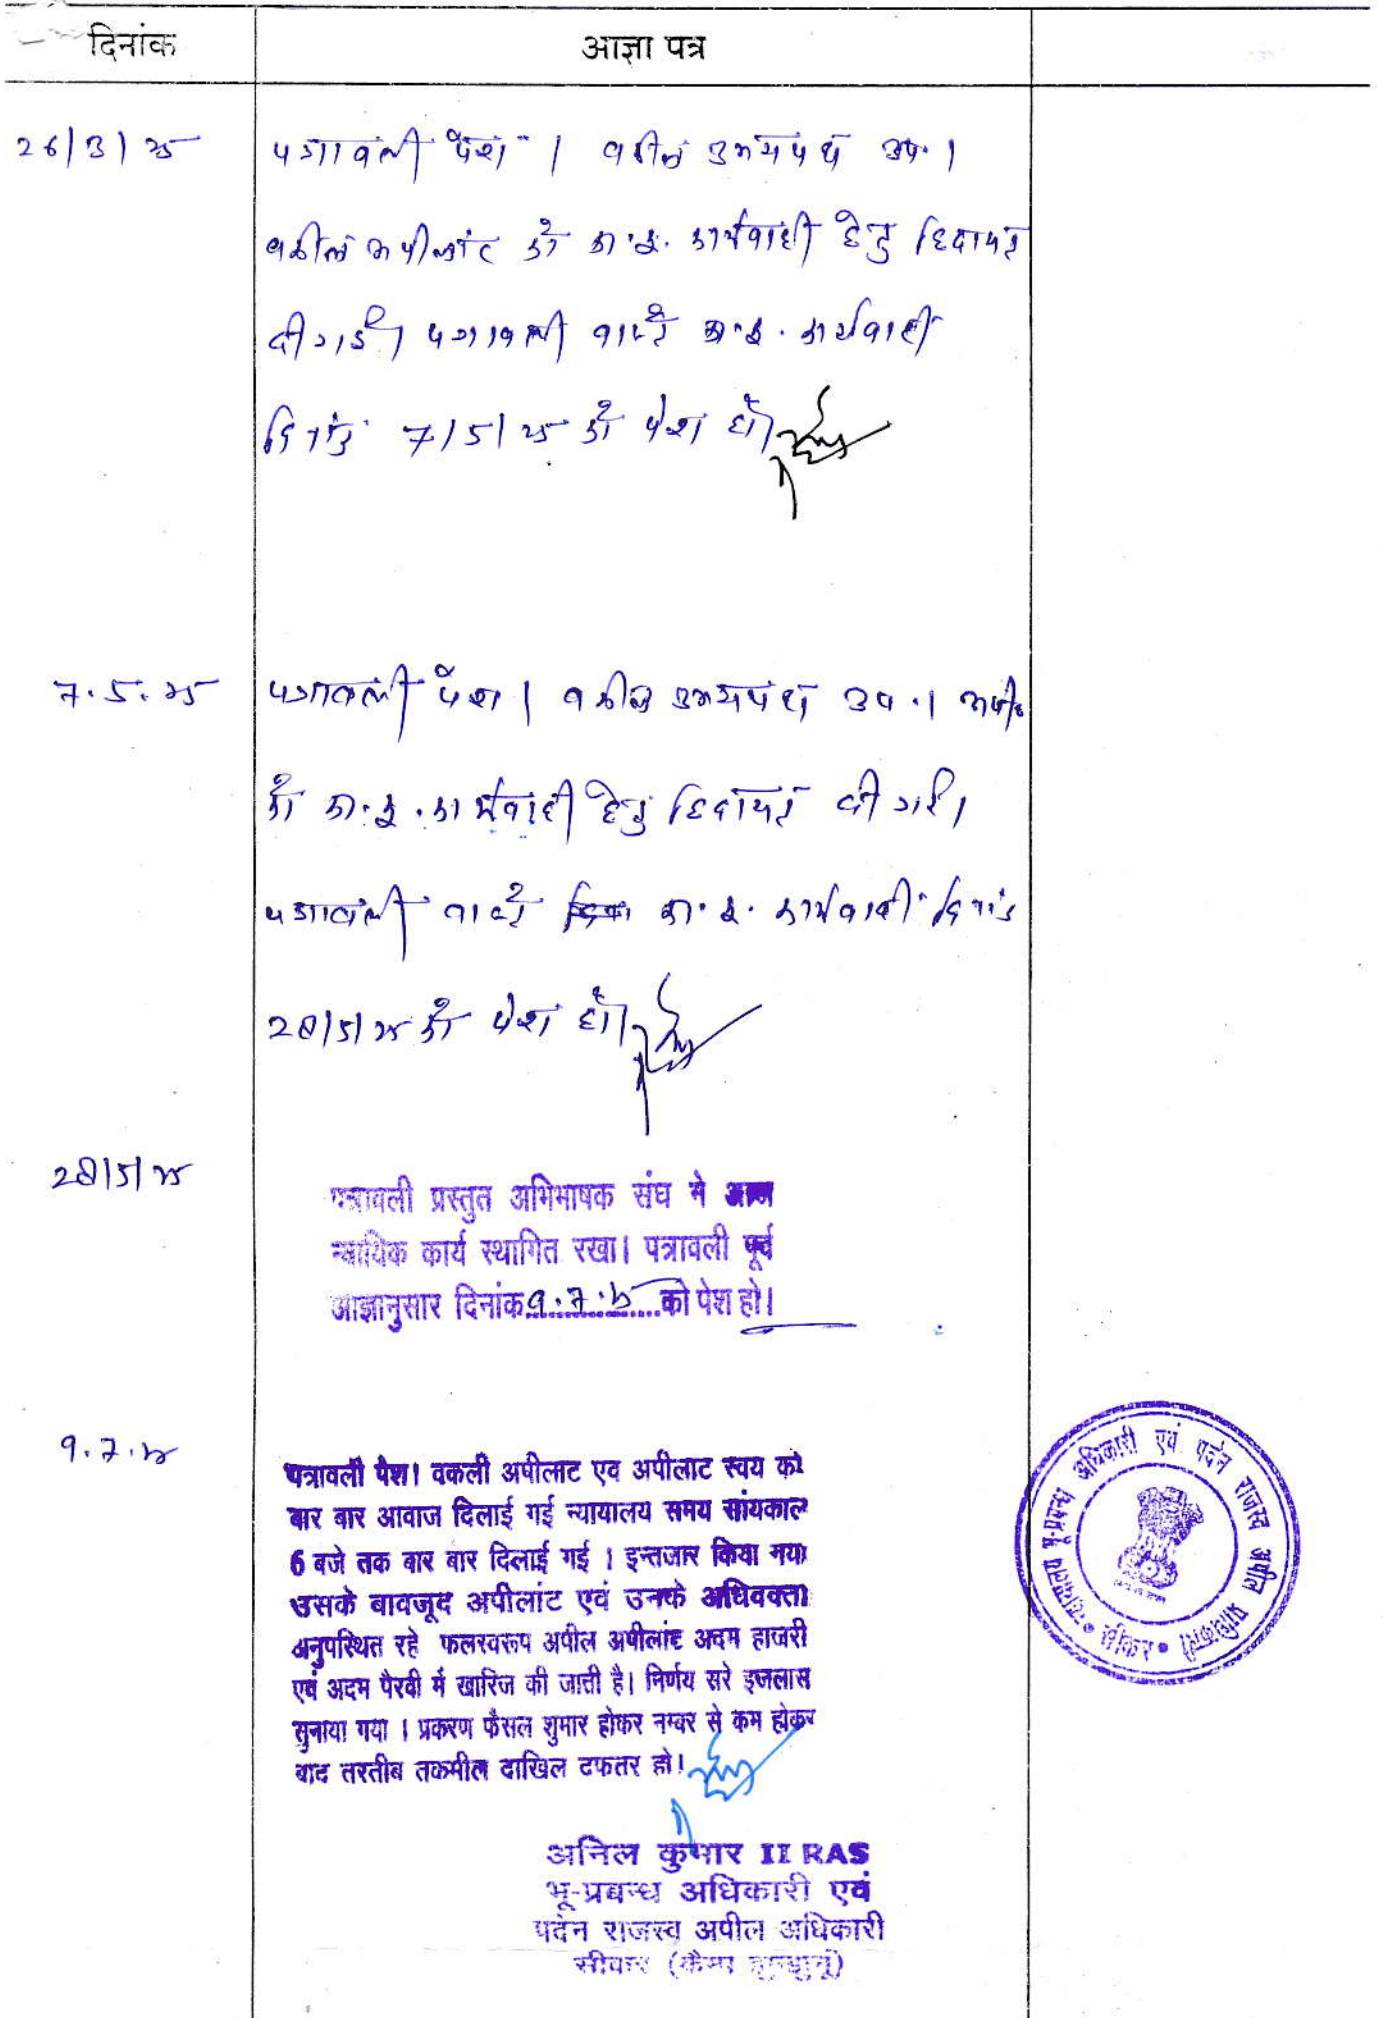 दिनांक
आज्ञा पत्र
26/3/25
पत्रावली पेश । वकील उभयपक्ष उप.।
वकील अपीलांट को का.इ. कार्यवाही हेतु हिदायत
दी गई। पत्रावली वास्ते का.इ. कार्यवाही
दिनांक 7/5/25 को पेश हो।
7.5.25
पत्रावली पेश । वकील उभयपक्ष उप.।
को का.इ. कार्यवाही हेतु हिदायत दी गई।
पत्रावली वास्ते का.इ. कार्यवाही दिनांक
28/5/25 को पेश हो।
28/5/25
पत्रावली प्रस्तुत अभिभाषक संघ मे आज
न्यायिक कार्य स्थागित रखा। पत्रावली पूर्व
आज्ञानुसार दिनांक 9.7.25 को पेश हो।
9.7.25
पत्रावली पेश। वकली अपीलाट एव अपीलाट स्वय को
बार बार आवाज दिलाई गई न्यायालय समय सांयकाल
6 बजे तक बार बार दिलाई गई । इन्तजार किया गया
उसके बावजूद अपीलांट एवं उनके अधिवक्ता
अनुपस्थित रहे फलस्वरूप अपील अपीलांट अदम हाजरी
एवं अदम पैरवी में खारिज की जाती है। निर्णय सरे इजलास
सुनाया गया । प्रकरण फैसल शुमार होकर नम्बर से कम होकर
बाद तरतीब तकमील दाखिल दफतर हो।
न्यायालय भू-प्रबन्ध अधिकारी एवं पदेन राजस्व अपील प्राधिकारी
सीकर
अनिल कुमार II RAS
भू-प्रबन्ध अधिकारी एवं
पदेन राजस्व अपील अधिकारी
सीकर (कैम्प झुन्झुनूं)